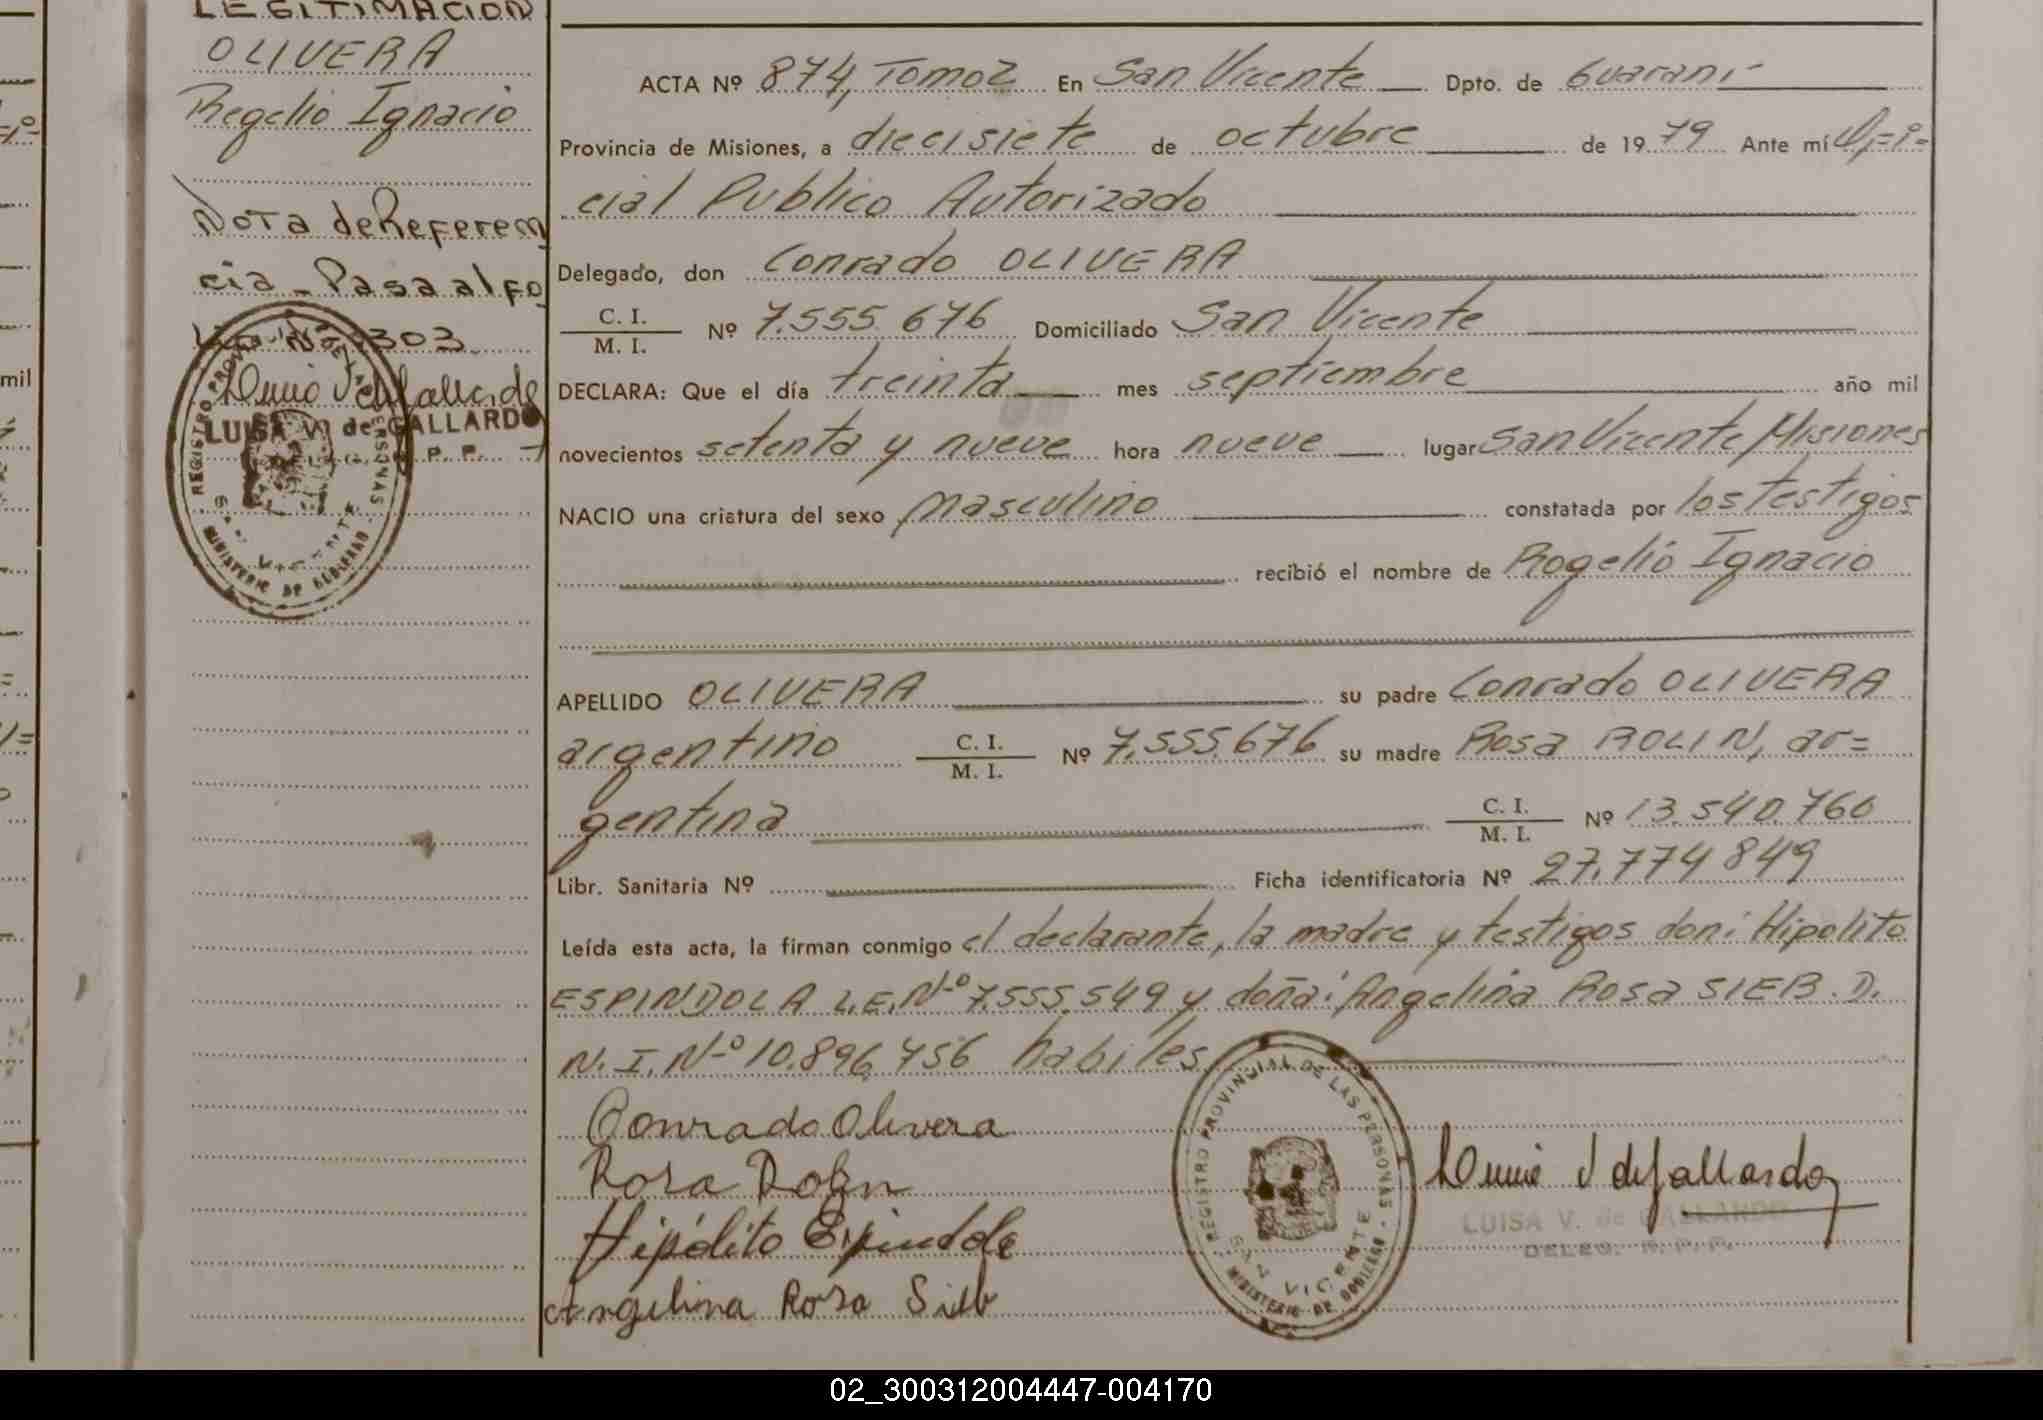 LEGITIMACION
OLIVERA
Rogelio Ignacio
Nota de Referem
cia - Pasa al fo
303
LUISA V. de GALLARDO
R. P. P.
REGISTRO PROVINCIAL DE LAS PERSONAS
SAN VICENTE
MINISTERIO DE GOBIERNO
mil
ACTA Nº 874, Tomo 2 En San Vicente Dpto. de Guaraní
Provincia de Misiones, a diecisiete de octubre de 1979 Ante mí Ofi=
cial Publico Autorizado
Delegado, don Conrado OLIVERA
C. I.
M. I. Nº 7.555.676 Domiciliado San Vicente
DECLARA: Que el día treinta mes septiembre año mil
novecientos setenta y nueve hora nueve lugar San Vicente, Misiones
NACIO una criatura del sexo masculino constatada por los testigos
recibió el nombre de Rogelio Ignacio
APELLIDO OLIVERA su padre Conrado OLIVERA
argentino C. I.
M. I. Nº 7.555.676 su madre Rosa ROLIN, ar=
gentina C. I.
M. I. Nº 13.540.760
Libr. Sanitaria Nº Ficha identificatoria Nº 27.774.849
Leída esta acta, la firman conmigo el declarante, la madre y testigos don: Hipolito
ESPINDOLA L.E. Nº 7.555.549 y doña: Angelina Rosa SIEB. D.
N. I. Nº 10.896.756 habiles
Conrado Olivera
Rosa Rolin
Hipólito Espindola
Angelina Rosa Sieb
REGISTRO PROVINCIAL DE LAS PERSONAS
SAN VICENTE
MINISTERIO DE GOBIERNO
LUISA V. de GALLARDO
DELEG. R. P. P.
02_300312004447-004170